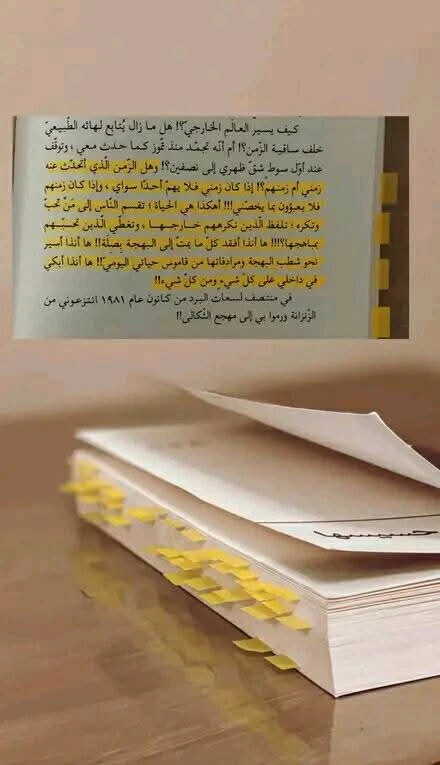 كيف يسير العالَم الخارجيّ؟! هل ما زال يُتابع لهاثه الطّبيعيّ
خلف ساقية الزّمن؟! أم أنّه تجمّد منذ تمّوز كما حدث معي، وتوقّف
عند أوّل سوط شقّ ظهري إلى نصفين؟! وهل الزّمن الّذي أتحدّث عنه
زمني أم زمنهم؟! إذا كان زمني فلا يهمّ أحدًا سواي، وإذا كان زمنهم
فلا يعبؤون بما يخصّني!!! أهكذا هي الحياة؛ تقسم النّاس إلى مَنْ تحبّ
وتكره؛ تلفظ الّذين تكرههم خارجـهـا، وتغطّي الّذين تحـبّـهـم
بمباهجها؟!!!! ها أنذا أفقد كلّ ما يمتّ إلى البهجة بصلة!! ها أنذا أسير
نحو شطب البهجة ومرادفاتها من قاموس حياتي اليوميّ!! ها أنذا أبكي
في داخلي على كلّ شيء ومن كلّ شيء!!
في منتصف لسعات البرد من كانون عام ١٩٨١ انتزعوني من
الزّنزانة ورموا بي إلى مهجع الثّكالى!!